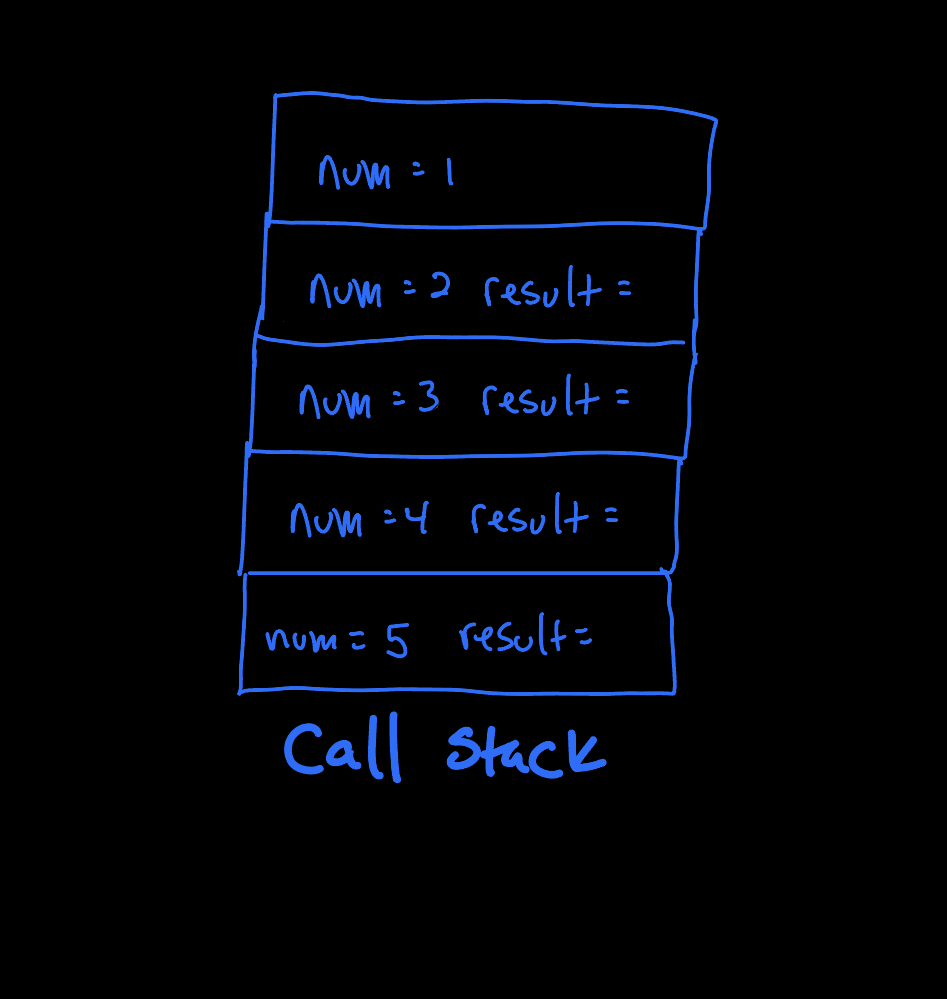 num = 1
num = 2 result =
num = 3 result =
num = 4 result =
num = 5 result =
Call stack